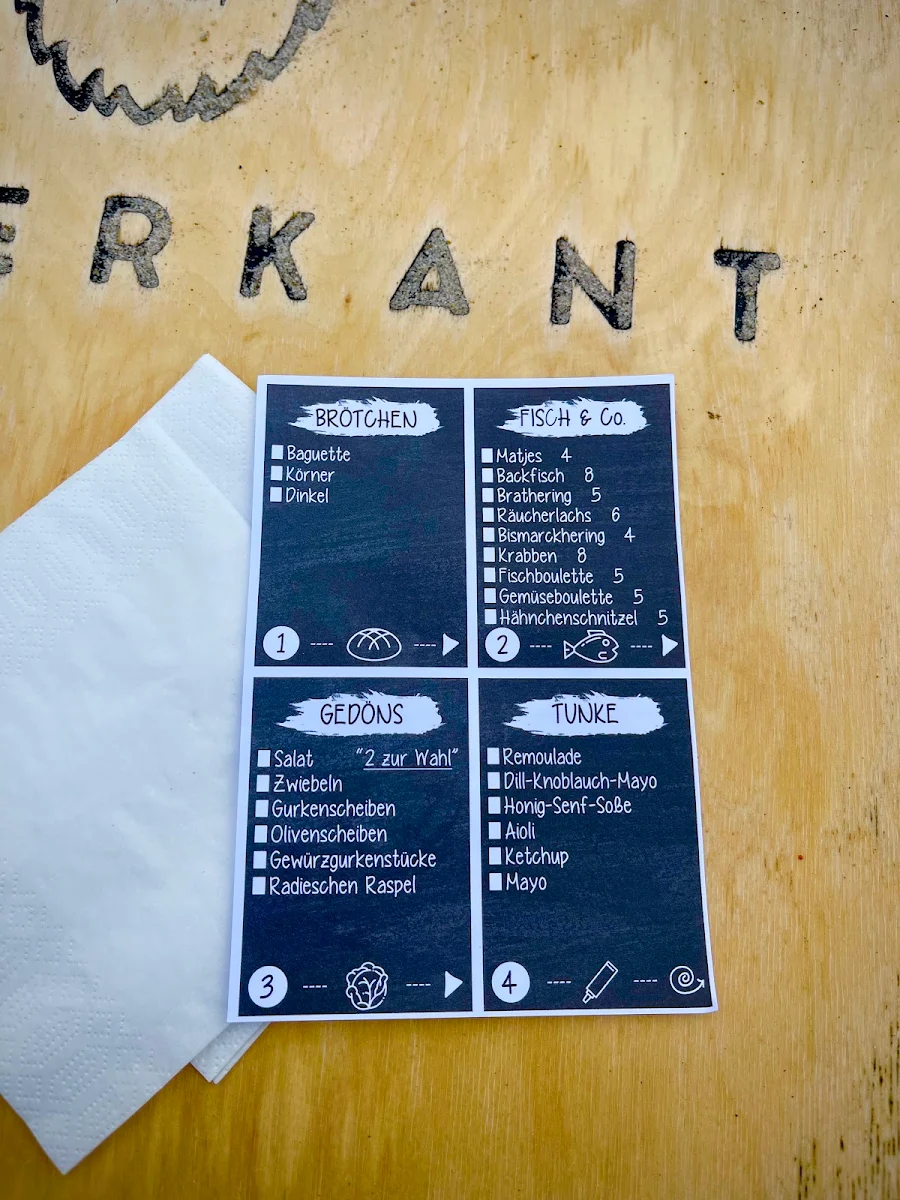 ERKANT
BRÖTCHEN
Baguette
Körner
Dinkel
1
FISCH & Co.
Matjes 4
Backfisch 8
Brathering 5
Räucherlachs 6
Bismarckhering 4
Krabben 8
Fischboulette 5
Gemüseboulette 5
Hähnchenschnitzel 5
2
GEDÖNS
Salat "2 zur Wahl"
Zwiebeln
Gurkenscheiben
Olivenscheiben
Gewürzgurkenstücke
Radieschen Raspel
3
TUNKE
Remoulade
Dill-Knoblauch-Mayo
Honig-Senf-Soße
Aioli
Ketchup
Mayo
4